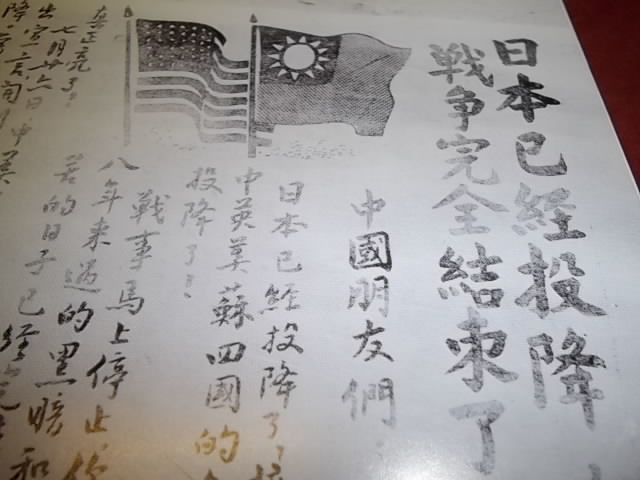 日本已經投降
戰爭完全結束了
中國朋友們：
日本已經投降了，
中英美蘇四國的
投降了：
戰事馬上停止，
八年來過的黑暗和
苦的日子已經
真正亮了。
七月廿六日，中美
出宣言
降。